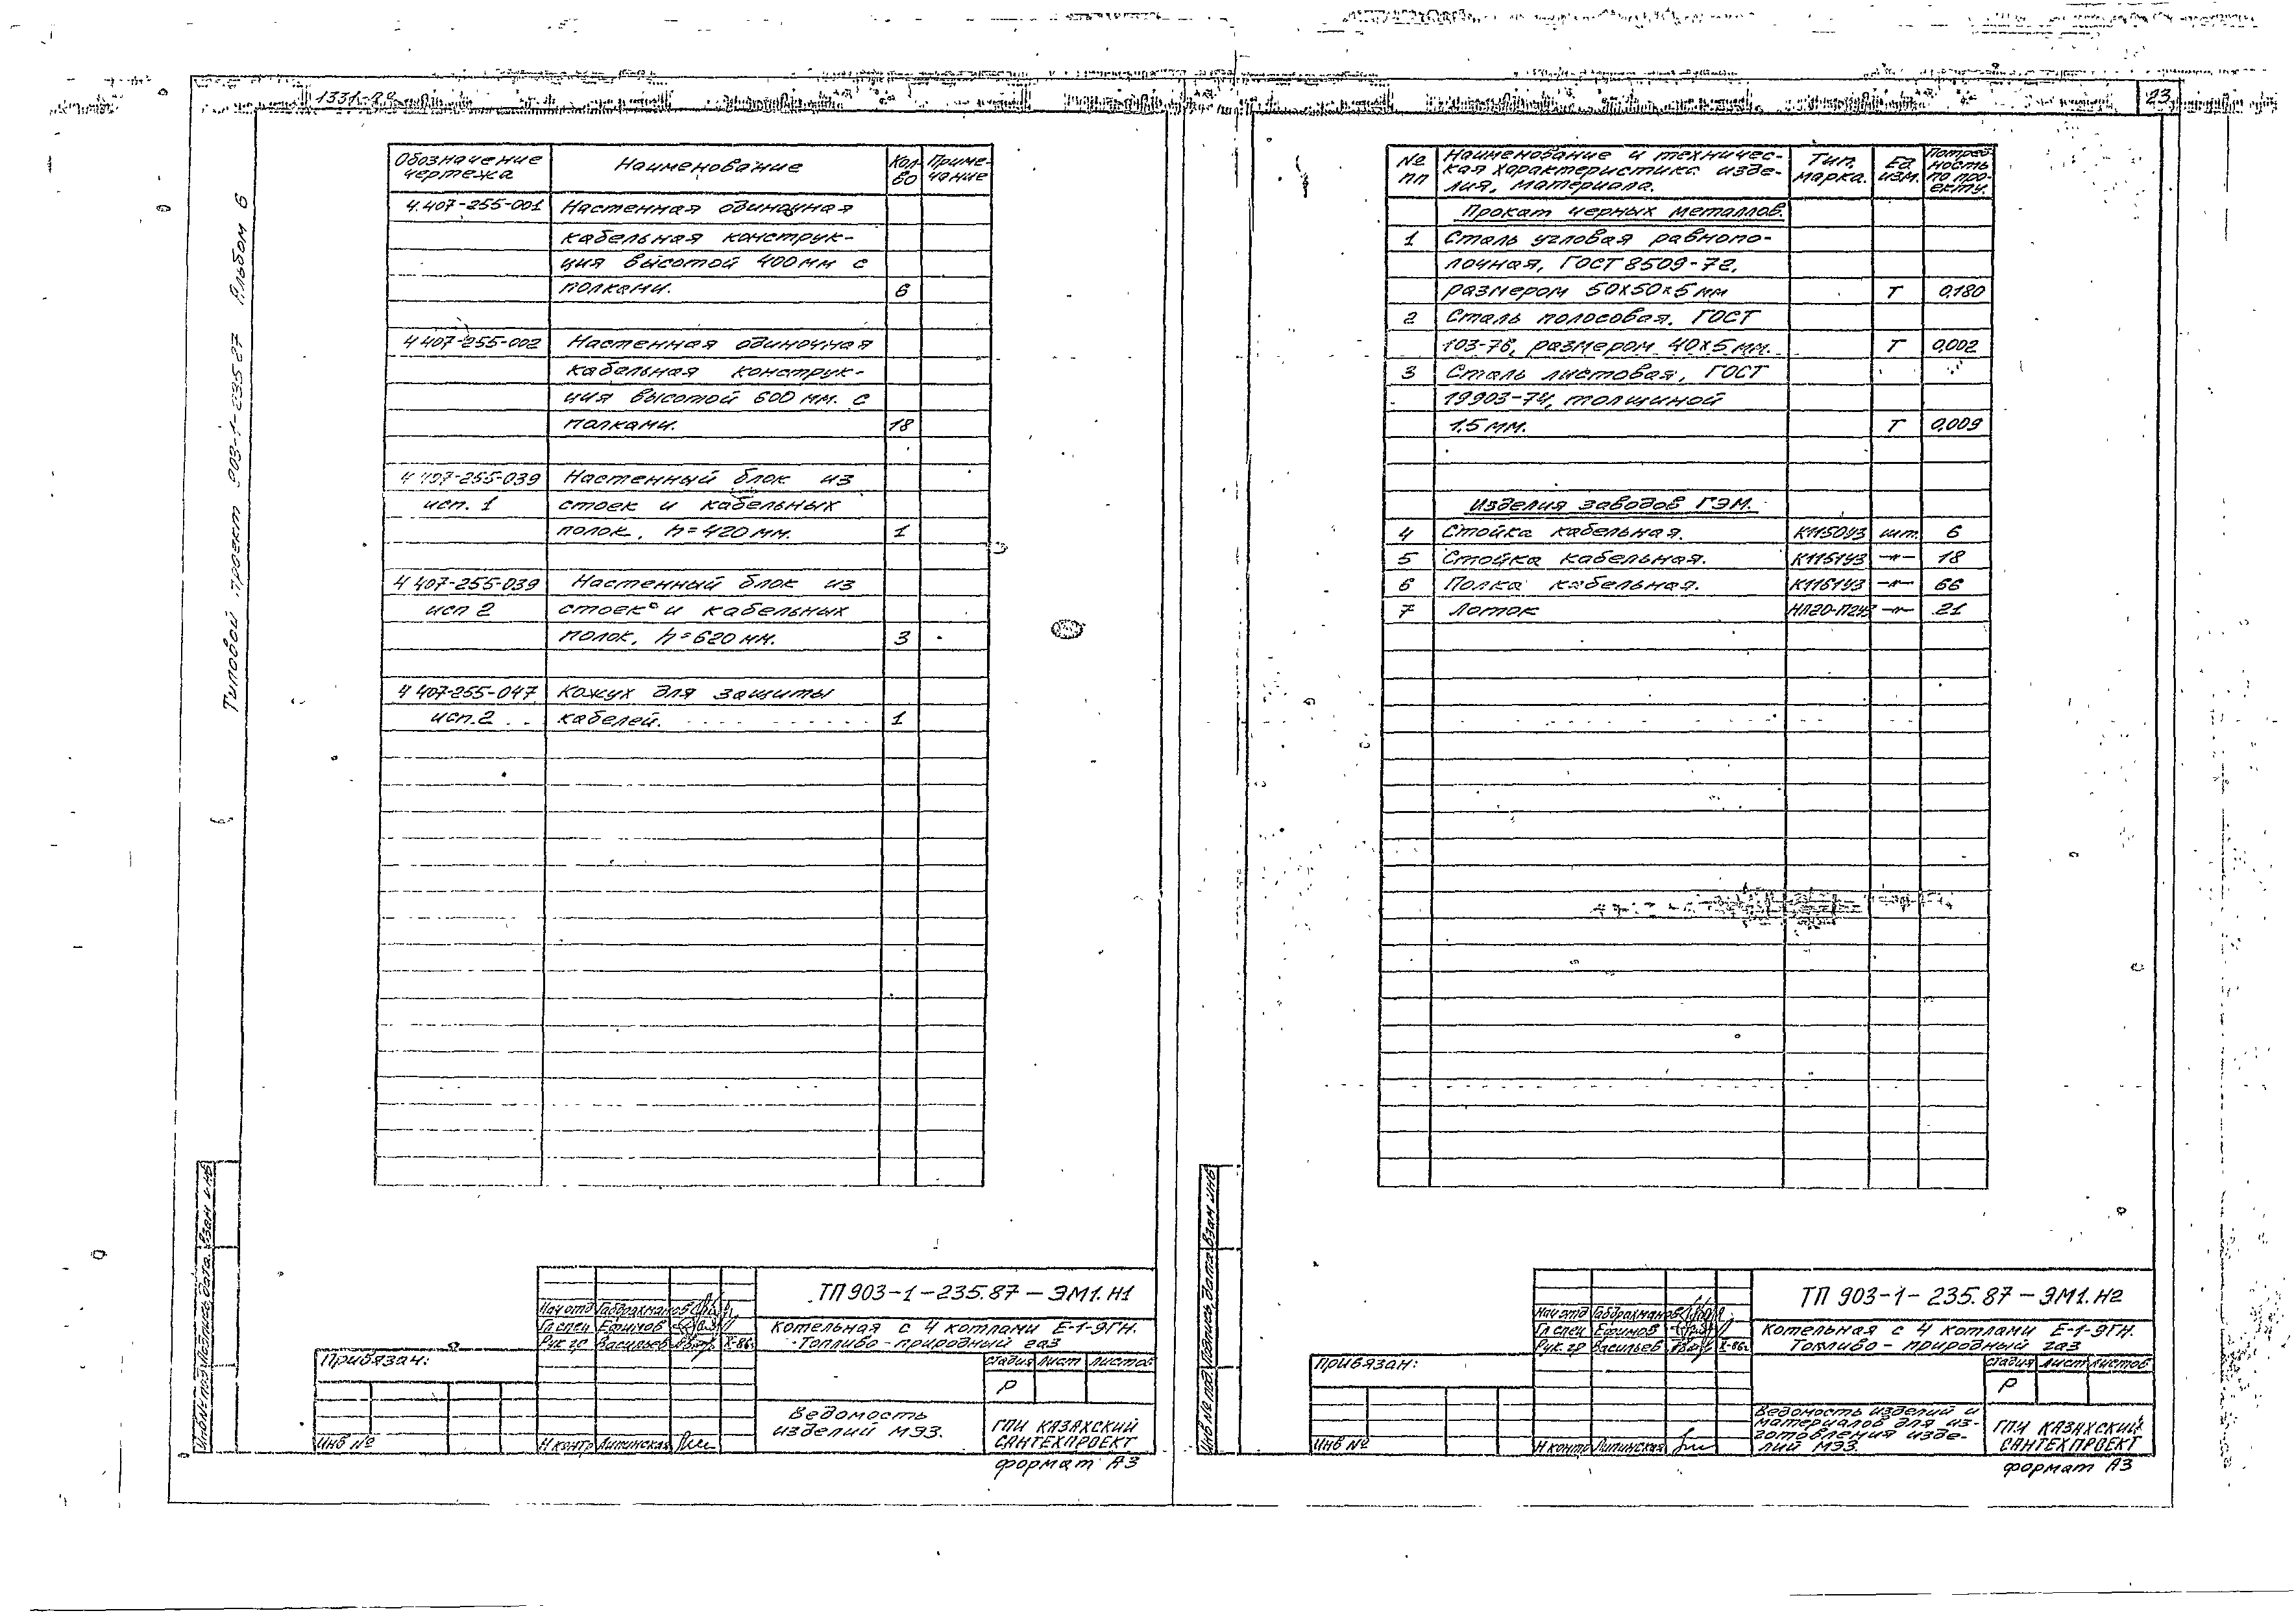 23
Типовой проект 903-1-235.87 Альбом 6
Обозначение чертежа Наименование Кол-во Примечание
4.407-255-001 Настенная одиночная
кабельная конструк-
ция высотой 400 мм с
полками. 6
4 407-255-002 Настенная одиночная
кабельная конструк-
ция высотой 600 мм. с
полками. 18
4 407-255-039 Настенный блок из
исп. 1 стоек и кабельных
полок, h=420 мм. 1
4 407-255-039 Настенный блок из
исп 2 стоек и кабельных
полок, h=620 мм. 3
4 407-255-047 Кожух для защиты
исп.2 кабелей. 1
Инв № под Подпись дата Взам инв
ТП 903-1-235.87-ЭМ1.Н1
Нач отд Габдрахманов
Гл спец Ефимов
Рук гр Васильев X-86г
Котельная с 4 котлами Е-1-9ГН.
Топливо-природный газ
Привязан:
стадия лист листов
Р
Ведомость
изделий МЭЗ.
ГПИ КАЗАХСКИЙ
САНТЕХПРОЕКТ
Инв №
Н контр Липинская
формат А3
№ пп Наименование и техничес-
кая характеристика изде-
лия, материала.
Тип, марка. Ед. изм. Потреб-
ность по про-
екту.
Прокат черных металлов.
1 Сталь угловая равнопо-
лочная, ГОСТ 8509-72,
размером 50х50х5 мм Т 0,180
2 Сталь полосовая. ГОСТ
103-76, размером 40х5 мм. Т 0,002
3 Сталь листовая, ГОСТ
19903-74, толщиной
1,5 мм. Т 0,009
Изделия заводов ГЭМ.
4 Стойка кабельная. К1150У3 шт. 6
5 Стойка кабельная. К1151У3 —"— 18
6 Полка кабельная. К1161У3 —"— 66
7 Лоток НЛ20-П2У3 —"— 21
Инв № под Подпись дата Взам инв
ТП 903-1-235.87-ЭМ1.Н2
Нач отд Габдрахманов
Гл спец Ефимов
Рук. гр Васильев X-86г
Котельная с 4 котлами Е-1-9ГН.
Топливо-природный газ
Привязан:
стадия лист листов
Р
Ведомость изделий и
материалов для из-
готовления изде-
лий МЭЗ
ГПИ КАЗАХСКИЙ
САНТЕХПРОЕКТ
Инв №
Н контр Липинская
формат А3